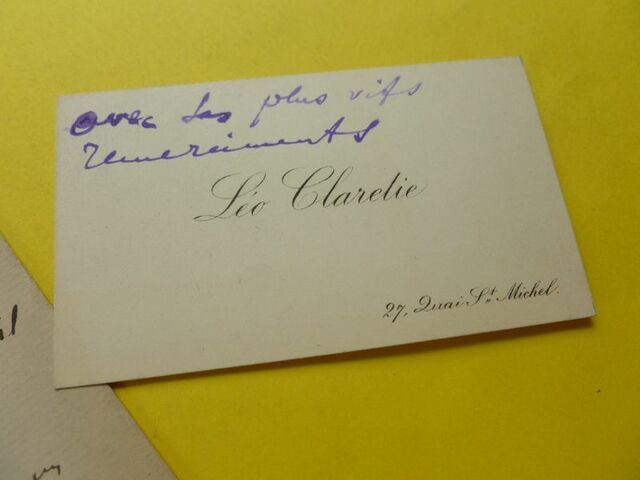 avec ses plus vifs
remerciments
Léo Claretie
27, Quai St. Michel.